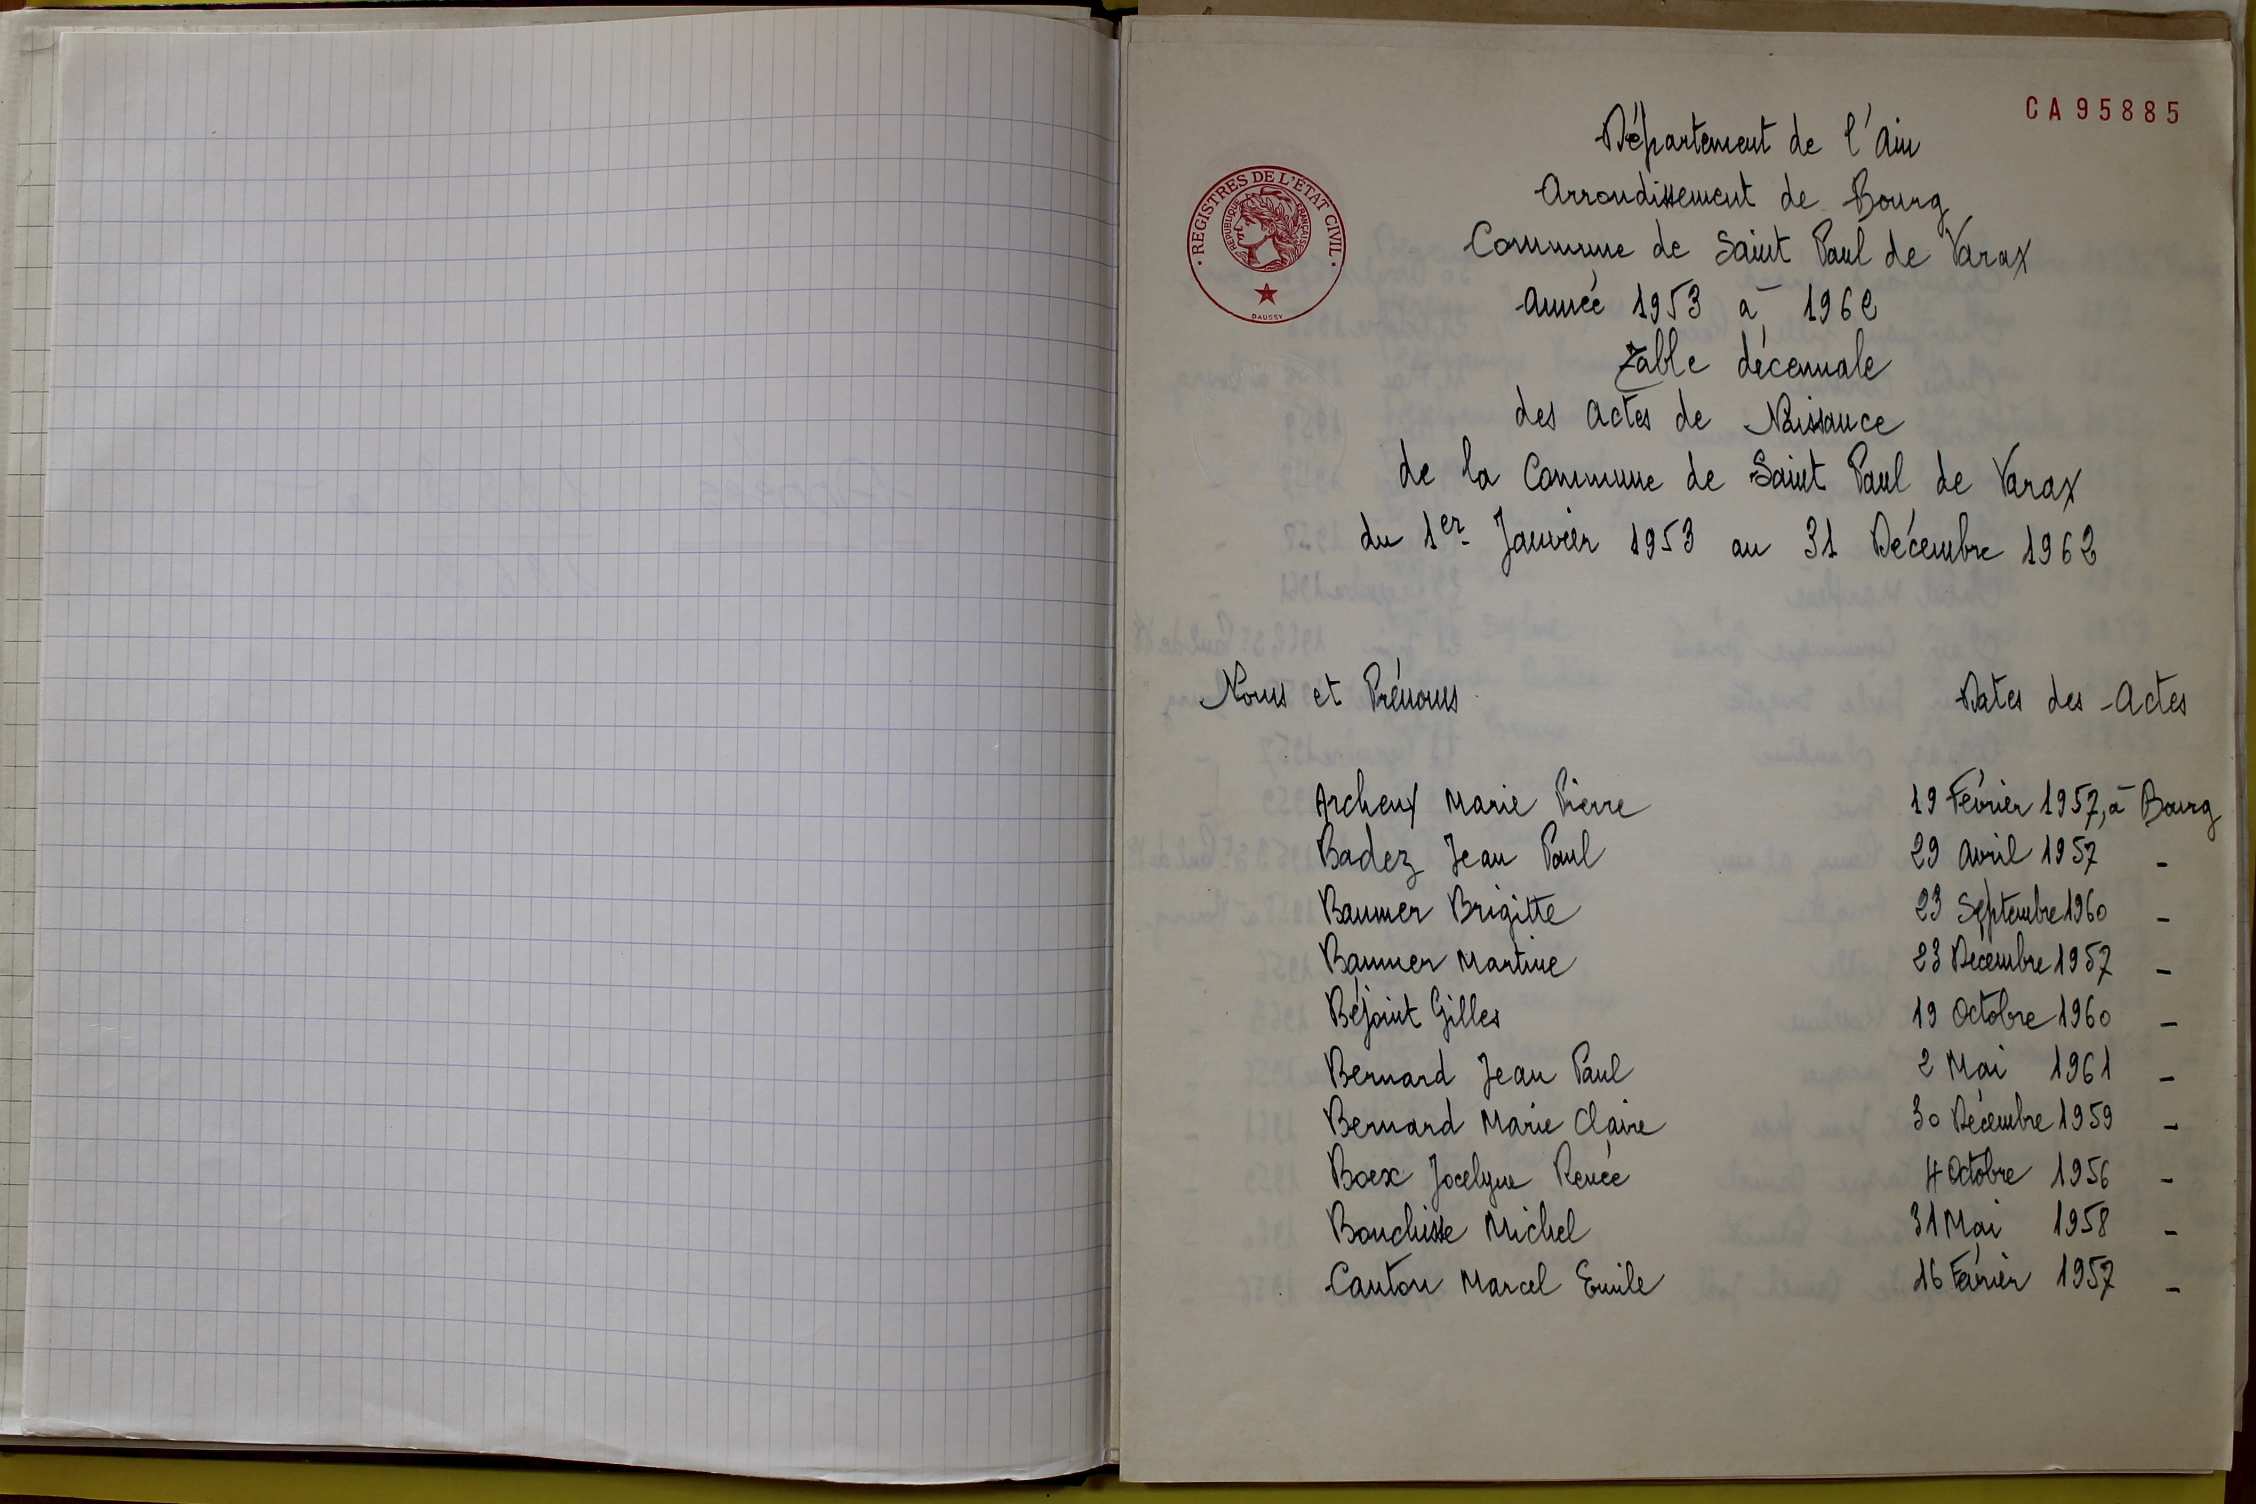 CA95885
· REGISTRES DE L'ÉTAT CIVIL ·
RÉPUBLIQUE FRANÇAISE
DAUSSY
Département de l'Ain
Arrondissement de Bourg
Commune de Saint Paul de Varax
Année 1953 à 1962
Table décennale
des Actes de Naissance
de la Commune de Saint Paul de Varax
du 1er Janvier 1953 au 31 Décembre 1962
Noms et Prénoms Dates des Actes
Archeux Marie Pierre 19 Février 1957, à Bourg
Badez Jean Paul 29 Avril 1957 -
Baumer Brigitte 23 Septembre 1960 -
Baumer Martine 23 Décembre 1957 -
Béjoint Gilles 19 Octobre 1960 -
Bernard Jean Paul 2 Mai 1961 -
Bernard Marie Claire 30 Décembre 1959 -
Boex Jocelyne Renée 4 Octobre 1956 -
Bouchisse Michel 31 Mai 1958 -
Canton Marcel Emile 16 Février 1957 -